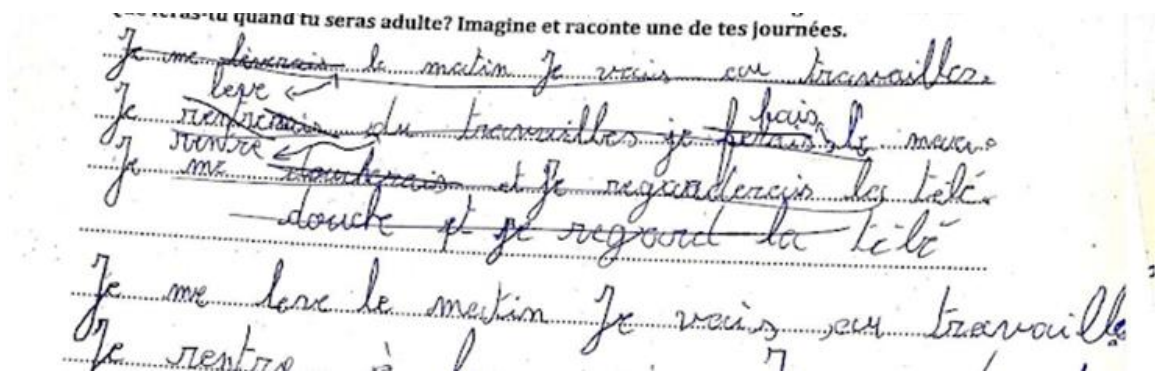 feras-tu quand tu seras adulte? Imagine et raconte une de tes journées.
Je me leverais le matin Je vais au travailles.
leve
fais
Je rentrerais du travailles je ferais le
rentre
Je me doucherais et Je regarderais la télé.
douche et je regard la télé
Je me leve le matin Je vais au travaille
Je rentre à